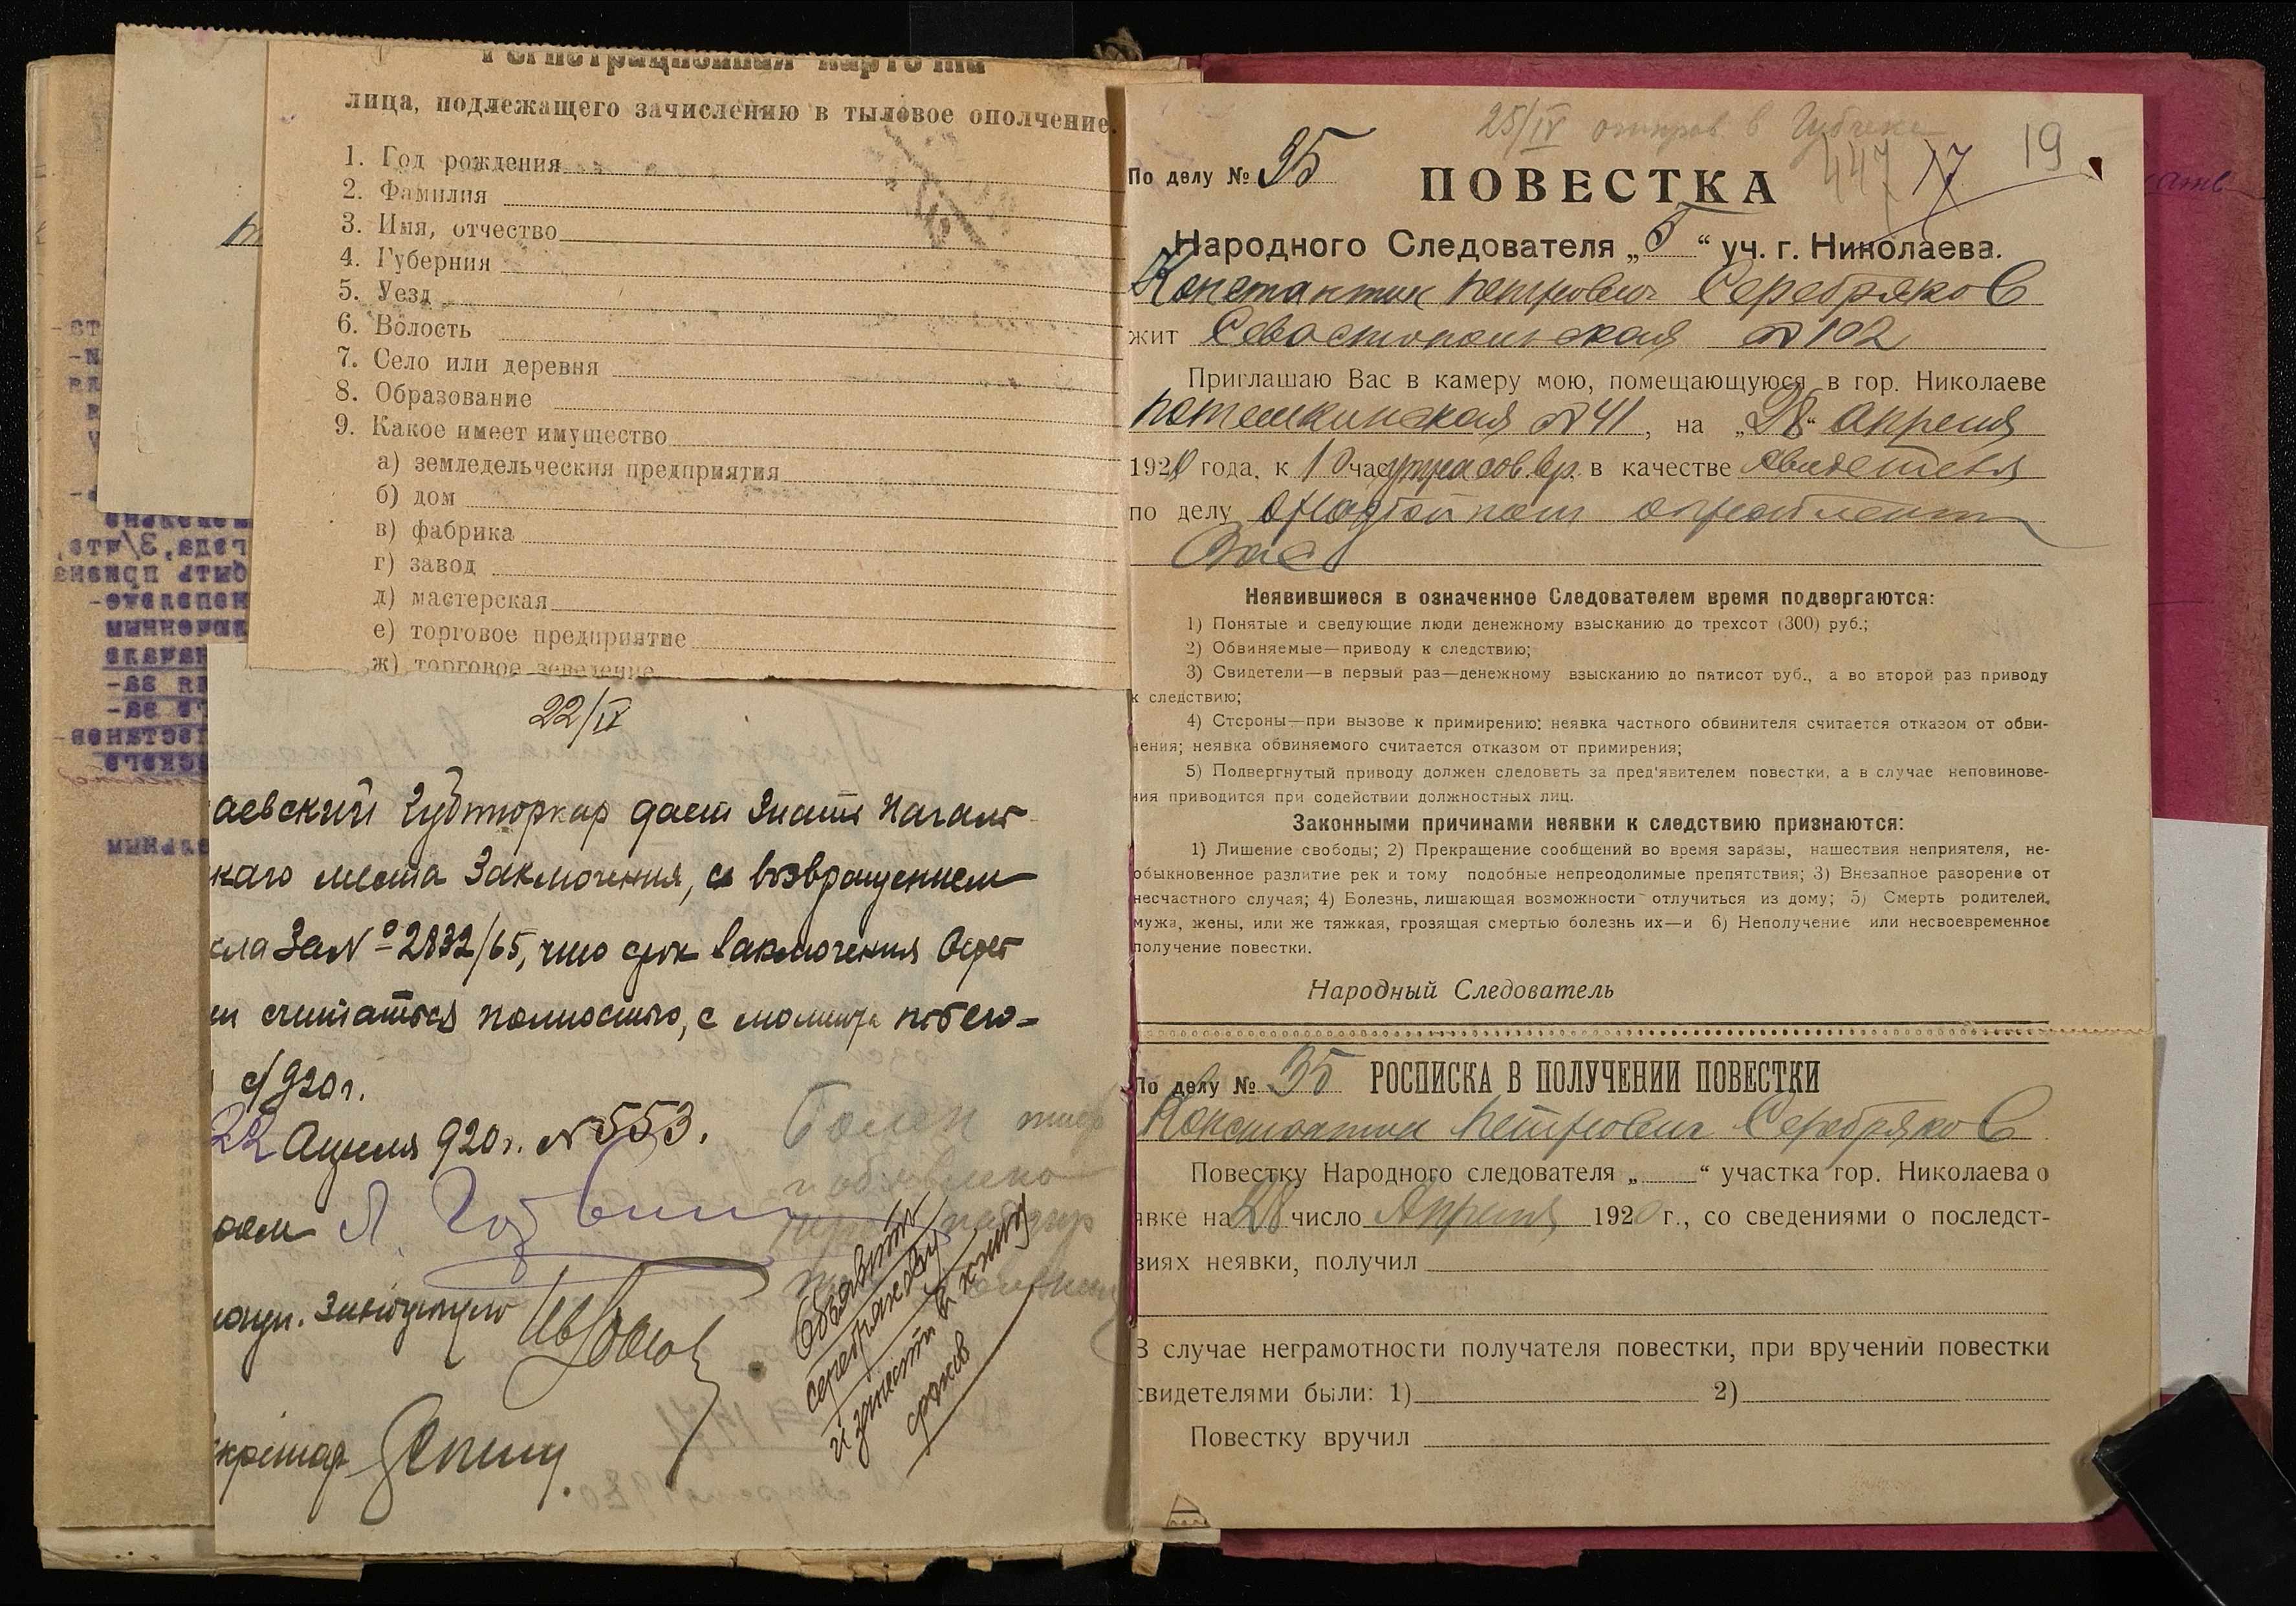 Регистрационная карточка
лица, подлежащего зачислению в тыловое ополчение.
1. Год рождения
2. Фамилия
3. Имя, отчество
4. Губерния
5. Уезд
6. Волость
7. Село или деревня
8. Образование
9. Какое имеет имущество
а) земледельческия предприятия
б) дом
в) фабрика
г) завод
д) мастерская
е) торговое предприятие
ж) торговое заведение
22/IV
аевский Губторкар дает знать Начальн
каго места Заключения, с возвращением
за № 2832/65, что срок заключения
считаться полностью, с момента
с/920 г.
22 Апреля 920 г. № 553.
Болен
объявлено
Объявить
Серебрякову
и занести в книгу
сроков
25/IV отправ. в Губчека
447 17 19
По делу № 35
ПОВЕСТКА
Народного Следователя „5“ уч. г. Николаева.
Константин Петрович Серебряков
жит Севастопольская № 102
Приглашаю Вас в камеру мою, помещающуюся в гор. Николаеве
Потемкинская № 41, на „28“ Апреля
1920 года, к 10 час утра сов. вр. в качестве свидетеля
по делу
Вас
Неявившиеся в означенное Следователем время подвергаются:
1) Понятые и сведующие люди денежному взысканию до трехсот (300) руб.;
2) Обвиняемые—приводу к следствию;
3) Свидетели—в первый раз—денежному взысканию до пятисот руб., а во второй раз приводу
к следствию;
4) Стороны—при вызове к примирению: неявка частного обвинителя считается отказом от обви-
нения; неявка обвиняемого считается отказом от примирения;
5) Подвергнутый приводу должен следовать за пред'явителем повестки, а в случае неповинове-
ния приводится при содействии должностных лиц.
Законными причинами неявки к следствию признаются:
1) Лишение свободы; 2) Прекращение сообщений во время заразы, нашествия неприятеля, не-
обыкновенное разлитие рек и тому подобные непреодолимые препятствия; 3) Внезапное разорение от
несчастного случая; 4) Болезнь, лишающая возможности отлучиться из дому; 5) Смерть родителей,
мужа, жены, или же тяжкая, грозящая смертью болезнь их—и 6) Неполучение или несвоевременное
получение повестки.
Народный Следователь
По делу № 35 РОСПИСКА В ПОЛУЧЕНИИ ПОВЕСТКИ
Константин Петрович Серебряков
Повестку Народного следователя „ “ участка гор. Николаева о
явке на 28 число Апреля 1920 г., со сведениями о последст-
виях неявки, получил
В случае неграмотности получателя повестки, при вручении повестки
свидетелями были: 1) 2)
Повестку вручил